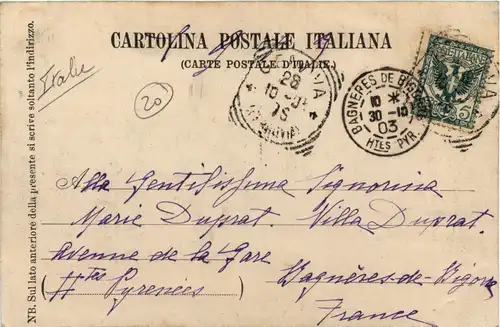 CARTOLINA POSTALE ITALIANA
(CARTE POSTALE D'ITALIE)
NB. Sul lato anteriore della presente si scrive soltanto l'indirizzo.
Italie
20
28
10
BAGNÈRES DE BIG
10 *
30 -10
03
HTES PYR.
Alla Gentilissima Signorina
Marie Duprat. Villa Duprat.
Avenue de la Gare
(Htes Pyrenées)
Bagnères-de-Bigorre
France